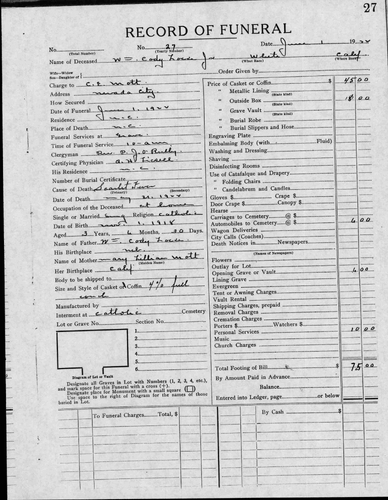 27
RECORD OF FUNERAL
No. No. 27 Date June 1 19
(Serial Number) (Yearly Number)
Name of Deceased Wm. Cody Jr. White Calif
(What Race) (Where Born)
Wife—Widow
Son—Daughter of Order Given by
Charge to C. E. Mott
Address to Nevada City
How Secured
Date of Funeral June 1, 19
Residence N.C.
Place of Death N.C.
Funeral Services at Grave
Time of Funeral Service 10 am
Clergyman Rev. P. J. O'Reilly
Certifying Physician
His Residence N.C.
Number of Burial Certificate
Cause of Death Scarlet Fever
(Primary) (Secondary)
Date of Death May 31, 19
Occupation of the Deceased at home
Single or Married Sing Religion Catholic
Date of Birth Nov 1, 1918
Aged 3 Years 6 Months 30 Days
Name of Father Wm. Cody
His Birthplace
Name of Mother Mary Lillian Mott
(Maiden Name)
Her Birthplace Calif
Body to be shipped to
Size and Style of Casket or Coffin 4/0 full
couch
Manufactured by
Interment at Catholic Cemetery
Lot or Grave No. Section No.
Diagram of Lot or Vault
Designate all Graves in Lot with Numbers (1, 2, 3, 4, etc.),
and mark space for this Funeral with a cross (+).
Designate place for Monument with a small square
Use space to right of Diagram for the names of those
buried in Lot.
Price of Casket or Coffin 45 00
" Metallic Lining
(State Kind)
" Outside Box 18 00
(State Kind)
" Grave Vault
(State Kind)
" Burial Robe
" Burial Slippers and Hose
Engraving Plate
Embalming Body (with Fluid)
Washing and Dressing
Shaving
Disinfecting Rooms
Use of Catafalque and Drapery
" Folding Chairs
" Candelabrum and Candles
Gloves $ Crape $
Door Crape $ Canopy $
Hearse
Carriages to Cemetery @ $
Automobiles to Cemetery @ $ 6 00
Wagon Deliveries
City Calls (Coaches)
Death Notices in Newspapers
(Names of Newspapers)
Flowers
Outlay for Lot
Opening Grave or Vault 6 00
Lining Grave
Evergreen
Tent or Awning Charges
Vault Rental
Shipping Charges, prepaid
Removal Charges
Cremation Charges
Porters $ Watchers $
Personal Services
Music
Church Charges
Total Footing of Bill $ 75 00
By Amount Paid in Advance
Balance
Entered into Ledger, page or below
To Funeral Charges Total, $ By Cash $